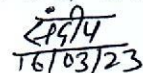 संदीप
16/03/23